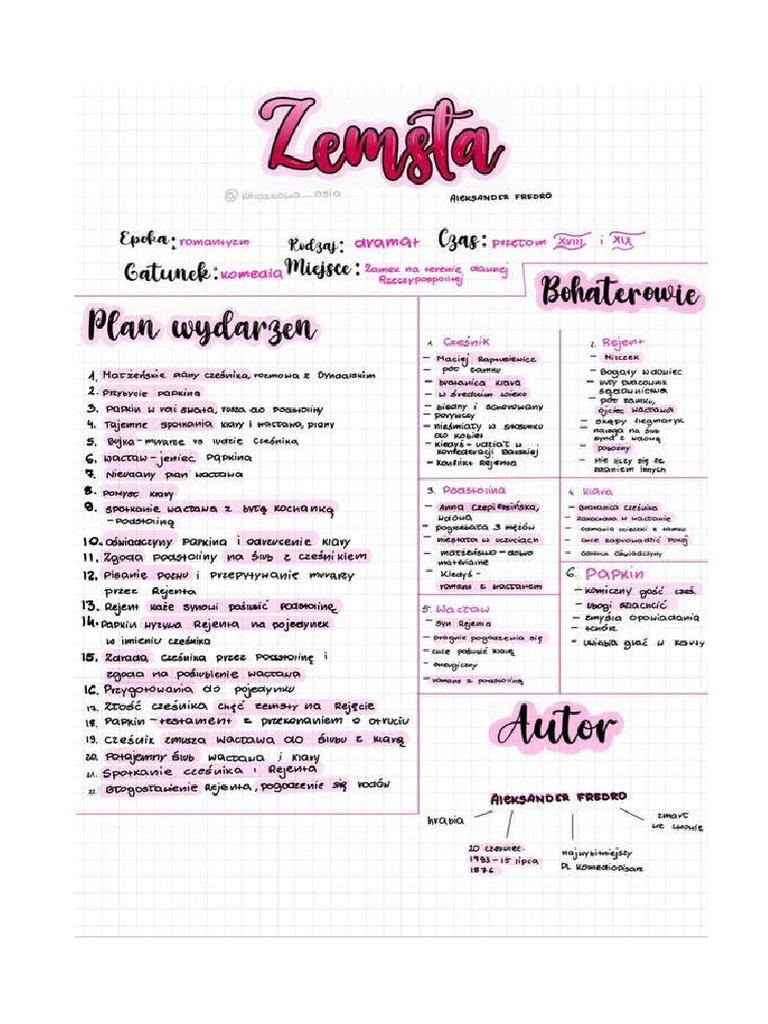 Zemsta
@ksiazkowa_asia
ALEKSANDER FREDRO
Epoka: romantyzm
Rodzaj: dramat
Czas: przełom XVIII i XIX
Gatunek: komedia
Miejsce: Zamek na terenie dawnej
Rzeczypospolitej
Plan wydarzeń
1. Małżeńskie plany cześnika, rozmowa z Dyndalskim
2. Przybycie Papkina
3. Papkin w roli swata, rusza do Podstoliny
4. Tajemne spotkania Klary i Wacława, plany
5. Bójka - murarze vs ludzie cześnika
6. Wacław - jeniec Papkina
7. Nieudany plan Wacława
8. Pomysł Klary
9. spotkanie Wacława z byłą kochanką
- Podstoliną
10. Oświadczyny Papkina i odrzucenie Klary
11. Zgoda Podstoliny na ślub z cześnikiem
12. Pisanie pozwu i przepytywanie murarzy
przez Rejenta
13. Rejent każe synowi poślubić Podstolinę
14. Papkin wyzywa Rejenta na pojedynek
w imieniu cześnika
15. Zdrada cześnika przez Podstolinę i
zgoda na poślubienie Wacława
16. Przygotowania do pojedynku
17. Złość cześnika chęć zemsty na Rejęcie
18. Papkin - testament z przekonaniem o otruciu
19. Cześnik zmusza Wacława do ślubu z Klarą
20. Potajemny ślub Wacława i Klary
21. Spotkanie cześnika i Rejenta
22. Błogosławienie Rejenta, pogodzenie się rodów
Bohaterowie
1. Cześnik
- Maciej Raptusiewicz
- pół zamku
- bratanica Klara
- w średnim wieku
- biedny i schorowany
porywczy
- nieśmiały w stosunku
do kobiet
- kiedyś - udział w
konfederacji Barskiej
- konflikt Rejenta
2. Rejent
- Milczek
- Bogaty wdowiec
- były pracownik
sądownictwa
- pół zamku,
ojciec Wacława
- skąpy flegmatyk
namawia na ślub
syna z wdową
- pobożny
- nie liczy się ze
zdaniem innych
3. Podstolina
- Anna Czepiersińska,
wdowa
- pogrzebała 3 mężów
- niestała w uczuciach
- małżeństwo - dobro
materialne
- Kiedyś -
romans z Wacławem
4. Klara
- Bratanica cześnika
- zakochana w Wacławie
- odmawia ucieczki z zamku
- chce zaprowadzić pokój
- odrzuca oświadczyny
5. Wacław
- syn Rejenta
- pragnie pogodzenia się
- chce poślubić Klarę
- energiczny
- romans z podstoliną
6. Papkin
- komiczny gość cześ.
- ubogi szlachcic
- zmyśla opowiadania
- tchórz
- uwielbia grać w karty
Autor
ALEKSANDER FREDRO
hrabia
20 czerwiec.
1793 - 15 lipca
1876
najwybitniejszy
PL komediopisarz
zmarł
we Lwowie